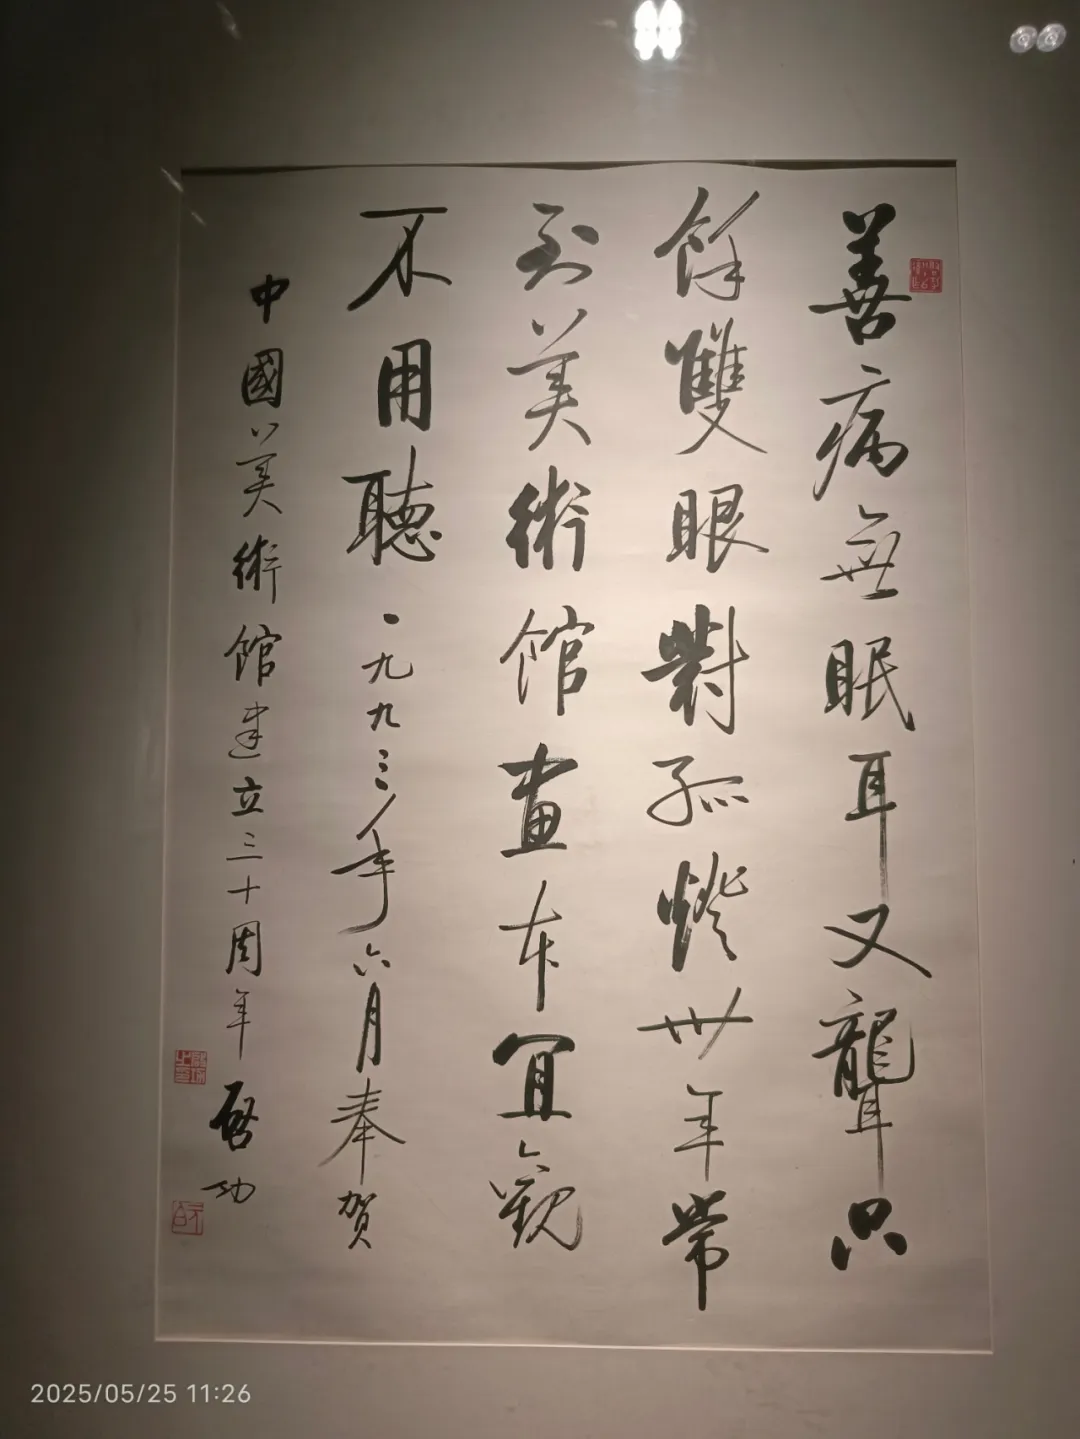 善病無眠耳又聾只
餘雙眼對孤燈卅年常
到美術館畫本宜觀
不用聽 一九九三年六月奉賀
中國美術館建立三十周年 啓功
2025/05/25 11:26